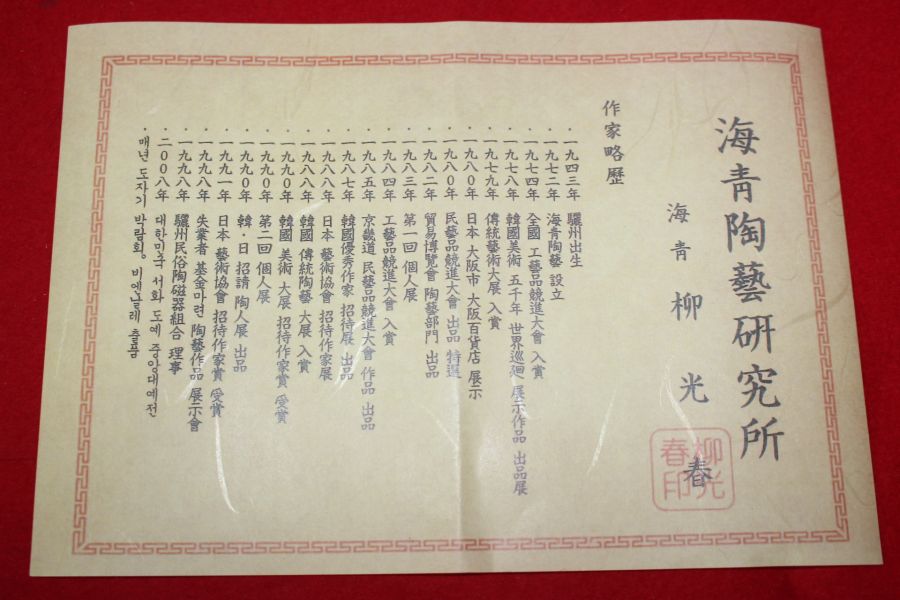 海青陶藝研究所
海青 柳光春
柳光春印
作家略歷
· 一九四三年 驪州出生
· 一九七二年 海青陶藝 設立
· 一九七四年 全國 工藝品競進大會 入賞
· 一九七八年 韓國美術 五千年 世界巡廻 展示作品 出品展
· 一九七九年 傳統藝術大展 入賞
· 一九八○年 日本 大阪市 大阪百貨店 展示
· 一九八○年 民藝品競進大會 出品 特選
· 一九八二年 貿易博覽會 陶藝部門 出品
· 一九八三年 第一回 個人展
· 一九八四年 工藝品競進大會 入賞
· 一九八五年 京畿道 民藝品競進大會 作品 出品
· 一九八七年 韓國優秀作家 招待展 出品
· 一九八八年 日本 藝術協會 招待作家展
· 一九八八年 韓國 傳統陶藝 大展 入賞
· 一九九○年 韓國 美術 大展 招待作家賞 受賞
· 一九九○年 第二回 個人展
· 一九九○年 韓·日 招請 陶人展 出品
· 一九九一年 日本 藝術協會 招待作家賞 受賞
· 一九九八年 失業者 基金마련 陶藝作品 展示會
· 一九九八年 驪州民俗陶磁器組合 理事
· 二○○八年 대한민국 서화 도예 중앙대예전
· 매년 도자기 박람회. 비엔날레 출품